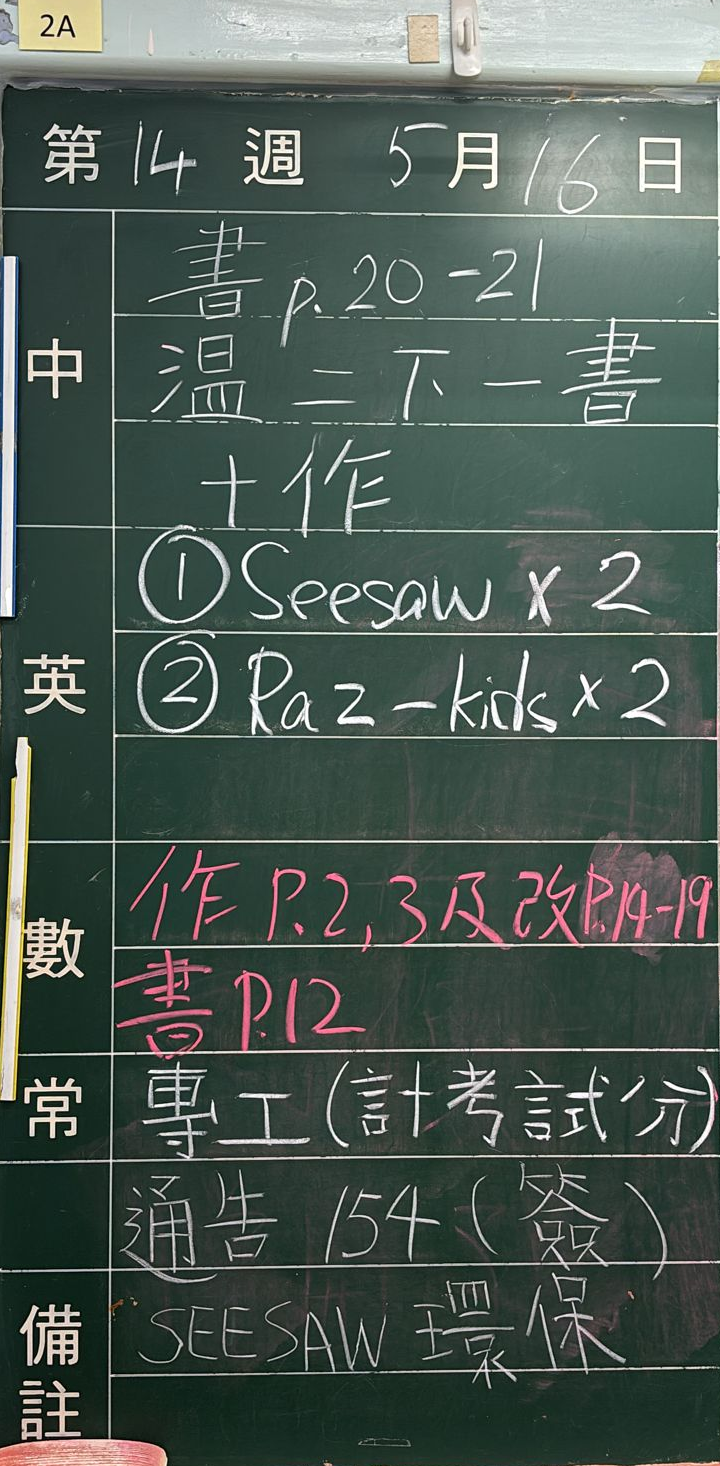 2A
第 14 週 5 月 16 日
中
書 p.20-21
温二下一書
+作
英
① Seesaw x 2
② Raz-kids x 2
數
作 P.2, 3 及改P.14-19
書 P.12
常
專工(計考試分)
通告 154 (簽)
備註
SEESAW 環保